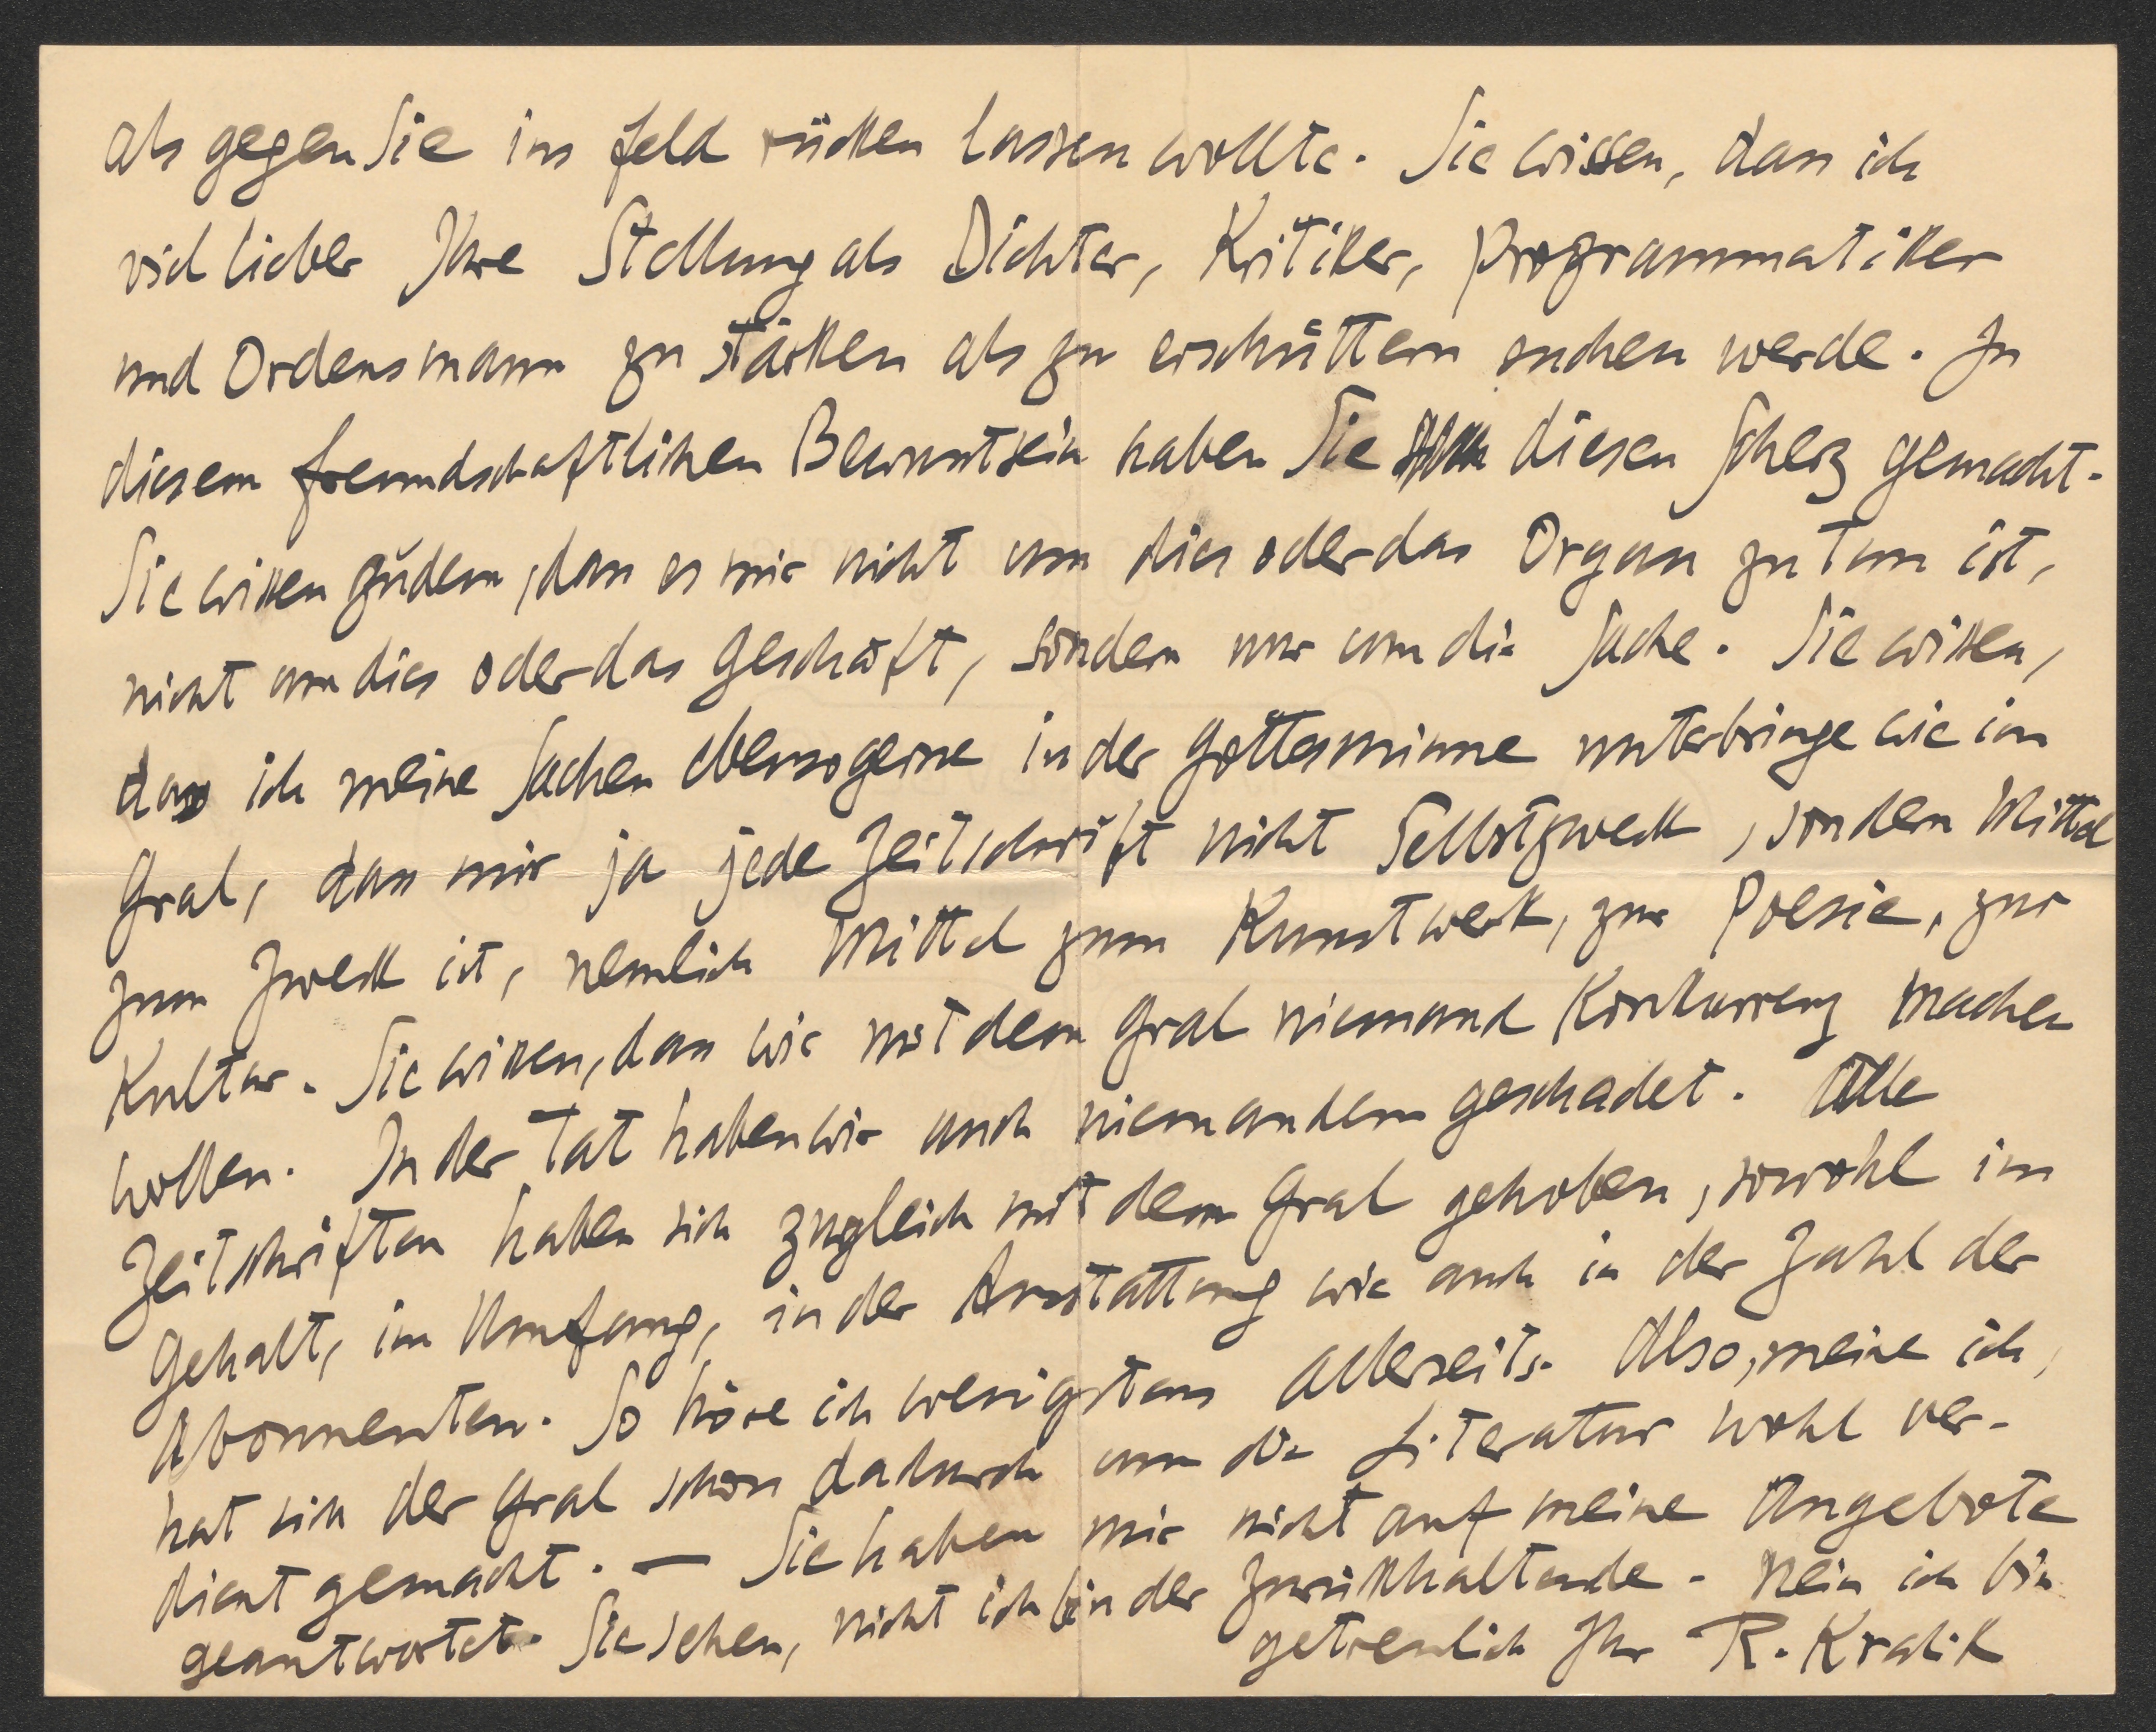 als gegen Sie ins Feld rücken lassen wollte. Sie wissen, dass ich
viel lieber Ihre Stellung als Dichter, Kritiker, Programmatiker
und Ordensmann zu stärken als zu erschüttern suchen werde. In
diesem freundschaftlichen Bewusstsein haben Sie diesen Scherz gemacht.
Sie wissen zudem, dass es mir nicht um dies oder das Organ zu tun ist,
nicht um dies oder das Geschäft, sondern nur um die Sache. Sie wissen,
dass ich meine Sachen ebenso gerne in der Gottesminne unterbringe wie im
Gral, dass mir ja jede Zeitschrift nicht Selbstzweck, sondern Mittel
zum Zweck ist, nemlich Mittel zum Kunstwerk, zur Poesie, zur
Kultur. Sie wissen, dass wir mit dem Gral niemand Konkurrenz machen
wollen. In der Tat haben wir auch niemandem geschadet. Alle
Zeitschriften haben sich zugleich mit dem Gral gehoben, sowohl im
Gehalt, im Umfang, in der Ausstattung wie auch in der Zahl der
Abonnenten. So höre ich wenigstens allerseits. Also, meine ich,
hat sich der Gral schon dadurch um die Literatur wohl ver-
dient gemacht. — Sie haben mir nicht auf meine Angebote
geantwortet. Sie sehen, nicht ich bin der Zurückhaltende. Nein ich bin
getreulich Ihr R. Kralik